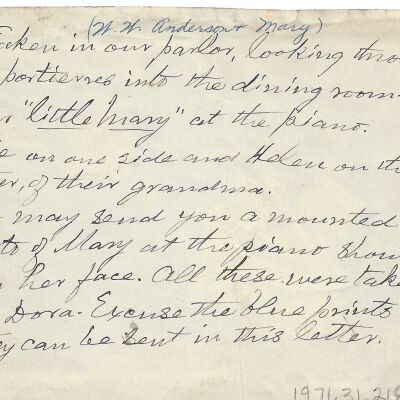 (W. W. Anderson & Mary)
Taken in our parlor, looking thro
portierres into the dining room
"little Mary" at the piano.
on one side and Helen on th
er, of their grandma.
may send you a mounted
to of Mary at the piano show
her face. All these were take
Dora. Excuse the blue prints
ey can be sent in this letter.
1971.31.219